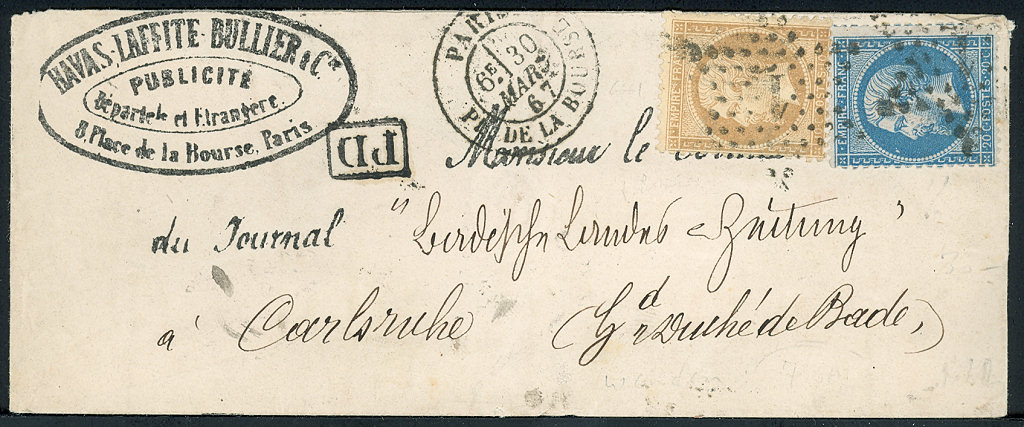 HAVAS-LAFFITE-BULLIER & Cie
PUBLICITÉ
Départale et Etrangère.
8, Place de la Bourse, Paris
PARIS
6E 30
MARS
67
PL. DE LA BOURSE
PD
EMPIRE FRANC
EMPIRE FRANC
20 CENTES 20 C
Monsieur le
du Journal "Badische Landes-Zeitung"
à Carlsruhe (Gd Duché de Bade,)